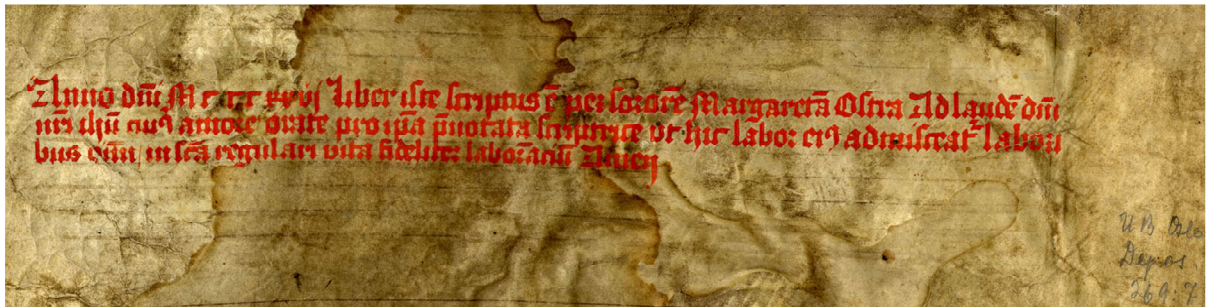 Anno dnī M cccc xxvj liber iste scriptus ē per sororē Margaretā Ostra Ad laudē dnī
nrī ihū cuiꝰ amore orate pro ip̄a p̄notata scriptrice vt hic labor eiꝰ admisceat᷑ labori
bus oīm in scā regulari vita fideliter laborāciū Amen
U B Oslo
Depos.
269:7